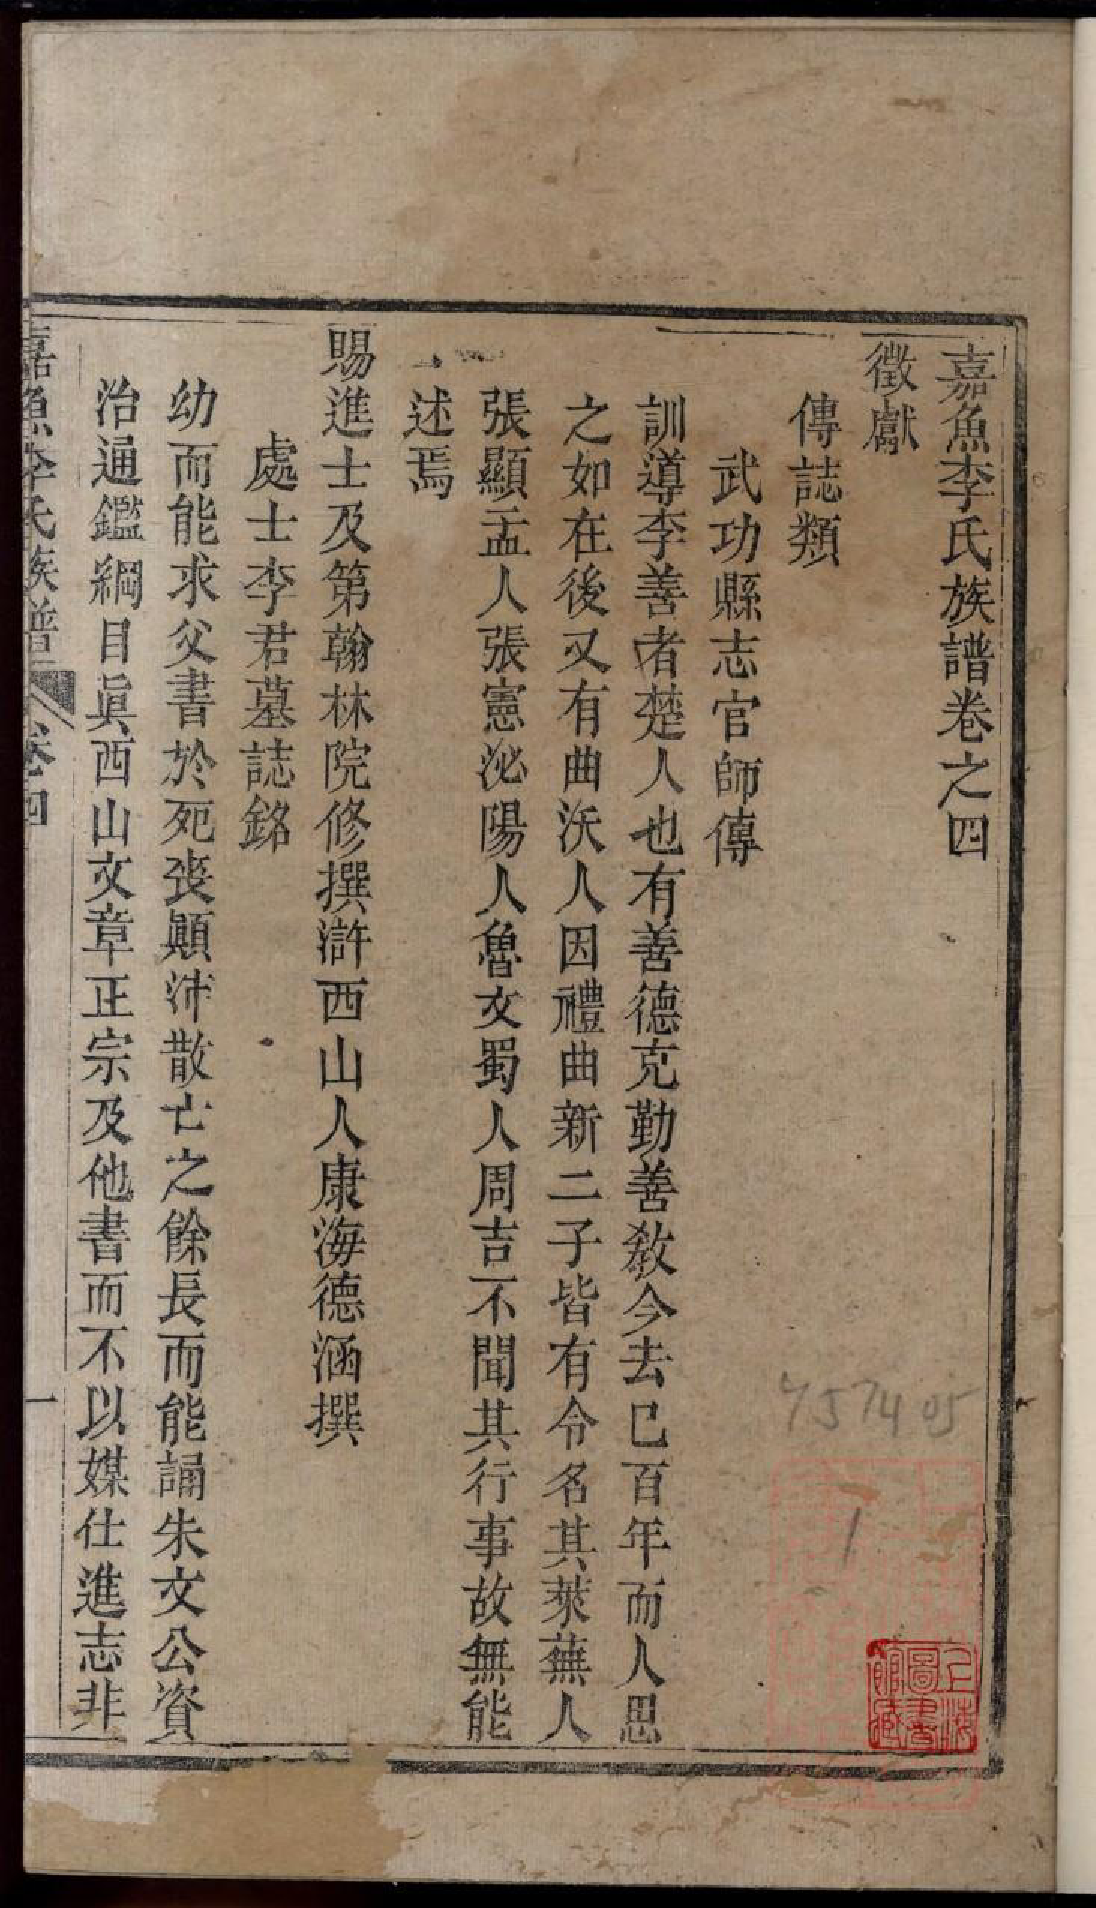 嘉魚李氏族譜卷之四
徵獻
傳誌類
武功縣志官師傳
訓導李善者楚人也有善德克勤善教今去已百年而人思
之如在後又有曲沃人因禮曲新二子皆有令名其萊蕪人
張顯盂人張憲泌陽人魯文蜀人周吉不聞其行事故無能
述焉
賜進士及第翰林院修撰滸西山人康海德涵撰
處士李君墓誌銘
幼而能求父書於死喪顛沛散亡之餘長而能誦朱文公資
治通鑑綱目眞西山文章正宗及他書而不以媒仕進志非
嘉魚李氏族譜 卷四 一
457405
1
上海圖書館藏